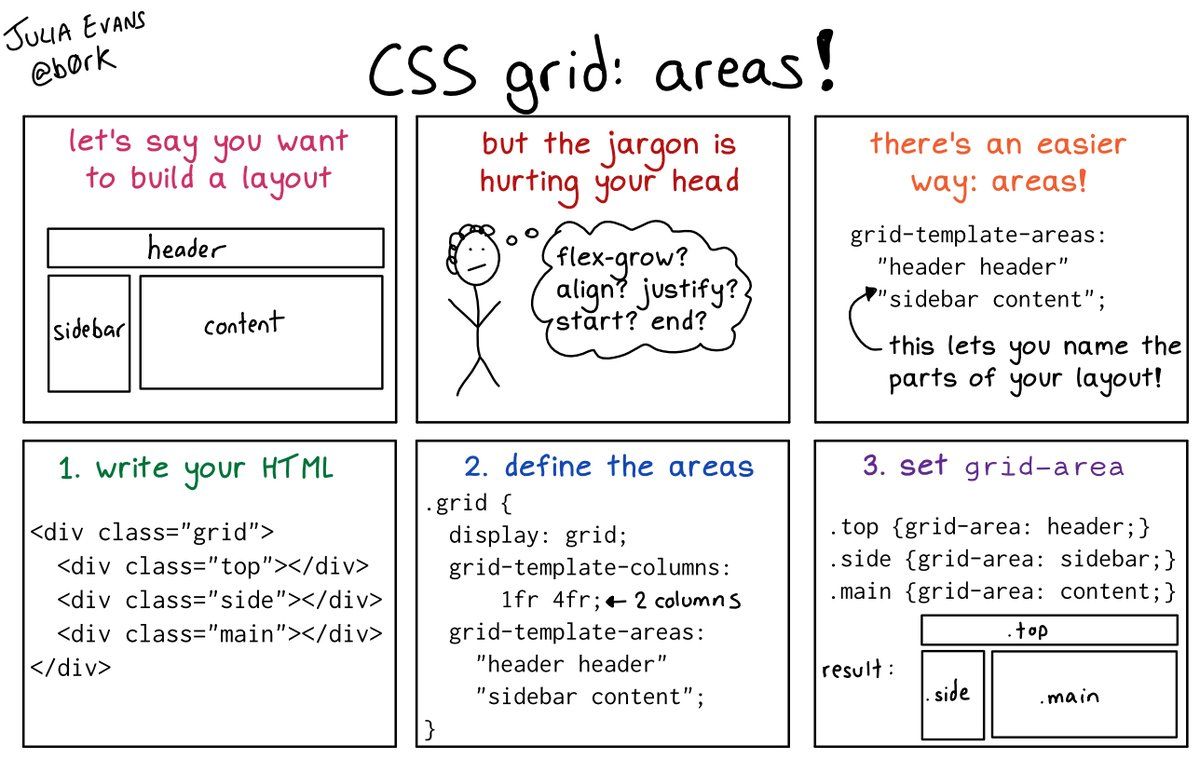 JULIA EVANS
@b0rk
CSS grid: areas!
let's say you want
to build a layout
header
sidebar
content
but the jargon is
hurting your head
flex-grow?
align? justify?
start? end?
there's an easier
way: areas!
grid-template-areas:
"header header"
"sidebar content";
this lets you name the
parts of your layout!
1. write your HTML
<div class="grid">
<div class="top"></div>
<div class="side"></div>
<div class="main"></div>
</div>
2. define the areas
.grid {
display: grid;
grid-template-columns:
1fr 4fr; ← 2 columns
grid-template-areas:
"header header"
"sidebar content";
}
3. set grid-area
.top {grid-area: header;}
.side {grid-area: sidebar;}
.main {grid-area: content;}
result:
.top
.side
.main